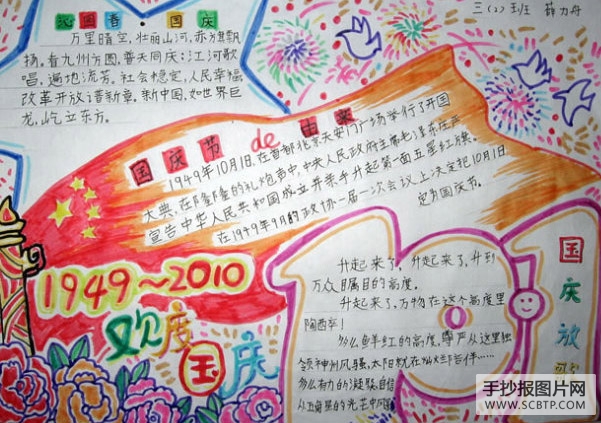 沁园春·国庆
万里晴空,壮丽山河,赤旗飘
扬。看九州方圆,普天同庆;江河歌
唱,遍地流芳。社会稳定,人民幸福
改革开放谱新章。新中国,如世界巨
龙,屹立东方。
三(1)班 薛力舟
国庆节de由来
1949年10月1日,在首都北京天安门广场举行了开国
大典,在隆隆的礼炮声中,中央人民政府主席毛泽东庄严
宣告中华人民共和国成立并亲手升起第一面五星红旗。
在1949年9月的政协一届一次会议上决定把10月1日
定为国庆节。
1949~2010
欢度国庆
升起来了,升起来了,升到
万众瞩目的高度。
升起来了,万物在这个高度里
陶醉
多么鲜红的高度,尊严从这里独
领神州风骚,太阳就在
多么有力的凝聚,自信
从五角星的光芒中
国庆放
手抄报图片网
WWW.SCBTP.COM